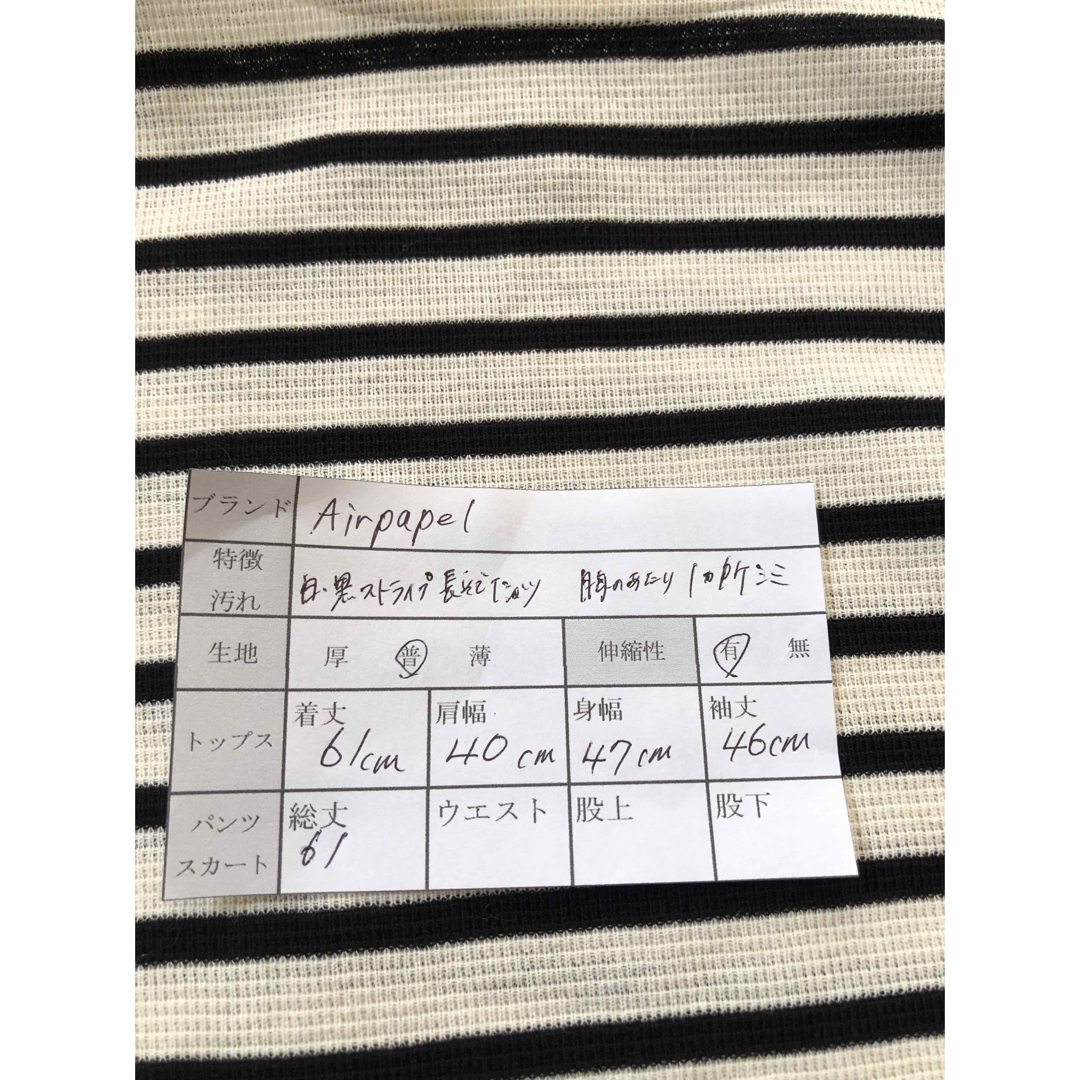 ブランド Airpapel
特徴
汚れ
白・黒ストライプ 長そでTシャツ 胸のあたり 1カ所ケシミ
生地 厚 普 薄 伸縮性 有 無
トップス 着丈 肩幅 身幅 袖丈
61cm 40cm 47cm 46cm
パンツ
スカート
総丈 ウエスト 股上 股下
61